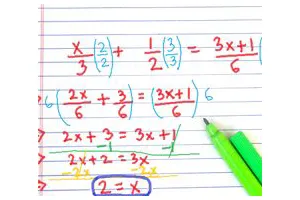 x/3 (2/2) + 1/2 (3/3) = 3x+1/6 (
6 (2x/6 + 3/6) = (3x+1/6) 6
> 2x + 3 = 3x + 1
-1 -1
> 2x + 2 = 3x
-2x -2x
> 2 = x